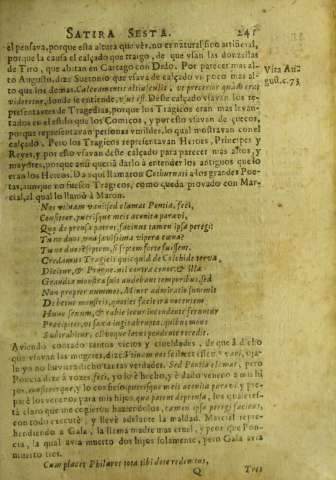 SATIRA SESTA. 241
él pensava, porque esta altura que ves, no es natural, sino artificial,
por que la causa el calçado que traigo, de que usan las donzellas
de Tiro, que abitan en Cartago con Dido. Por parecer mas al-
to Augusto, dize Suetonio que usava de calçado un poco mas al-
to que los demas. Calceamentis altiusculis, ut procerior quàm erat
videretur, donde se entiende, Deste calçado usavan los re-
presentantes de Tragedias, porque los Tragicos eran mas levan-
tados en el estilo que los Comicos, y por esto usavan de çuecos,
porque representavan personas humildes, lo qual mostravan con el
calçado. Pero los Tragicos representavan Heroes, Principes y
Reyes, y por esto usavan deste calçado para parecer mas altos, y
mayores, porque assi queria darlo à entender los antiguos que lo
eran los Heroes. Da aqui llamaron Cothurnati à los grandes Poe-
tas, aunque no fuessen Tragicos, como queda provado con Mar-
cial, al qual lo llamò à Maron.
Vita Au-
gust. c. 73
Nos utinam vani: sed clamat Pontia, feci,
Confiteor, puerisque meis aconita paravi,
Quae deprensa patent, facinus tamen ipsa peregi:
Tu ne duos una saevissima vipera coena?
Tu ne duos? septem, si septem forte fuissent.
Credamus Tragicis quicquid de Colchide torva,
Dicitur, & Progne, nil contra conor: & illae
Grandia monstra suis audebant temporibus, sed
Non propter nummos. Minor admiratio summis
Debetur monstris, quoties facit ira nocentem
Hunc sexum, & rabie iecur incendente feruntur
Praecipites, ut saxa iugis abrupta, quibus mons
Subtrahitur, clivoque latus pendente recedit.
Aviendo contado tantos vicios y crueldades, de que à dicho
que usavan las mugeres, dize: Utinam nos vani, oja-
la yo no huviera dicho tantas verdades. Sed Pontia clamat, pero
Poncia dize à vozes: feci, yo lo è hecho, è dado veneno à mis hi-
y lo confiesso: puerisque meis aconita paravi, y pre-
parè los venenos para mis hijos: quae patent deprensa, los quales es-
tà claro que me cogieron haziendolos, tamen ipsa peregi facinus,
con todo executè, y llevè adelante la maldad. Marcial repre-
hendiendo à Gala, la llama mas cruel, y peor que Pon-
cia, la qual avia muerto dos hijos solamente, pero Gala avia
muerto tres.
Cum placet Phileros tota tibi dote redemtus,
Q Tres